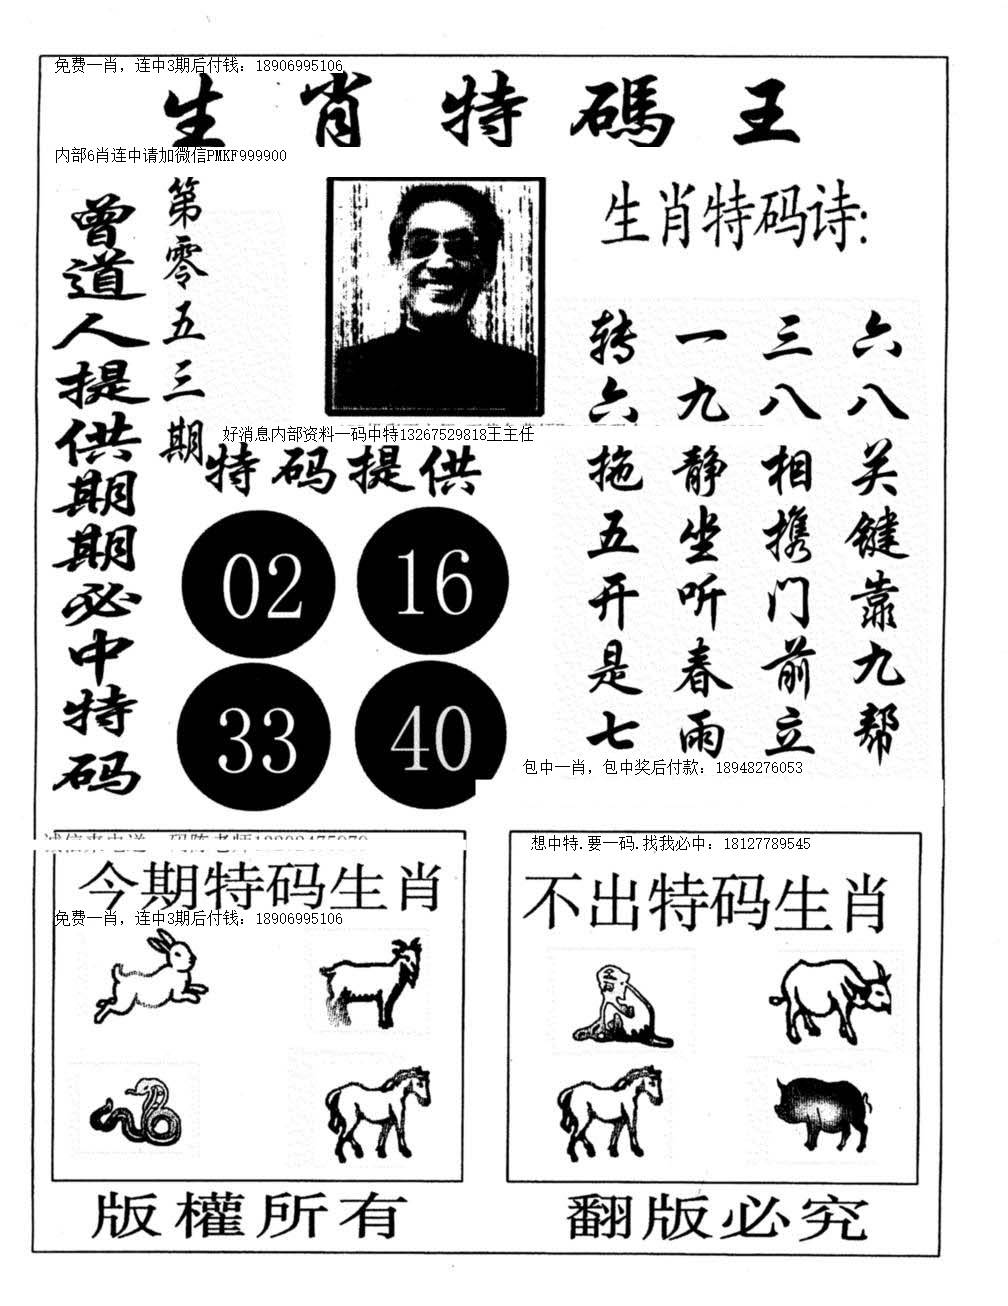 免费一肖，连中3期后付钱：18906995106
生肖特碼王
内部6肖连中请加微信PMKF999900
曾道人提供期期必中特码
第零五三期
生肖特码诗:
六八关键靠九帮
三八相携门前立
一九静坐听春雨
转六拖五开是七
好消息内部资料一码中特13267529818王主任
特码提供
02 16
33 40
包中一肖，包中奖后付款：18948276053
想中特.要一码.找我必中：18127789545
今期特码生肖
免费一肖，连中3期后付钱：18906995106
不出特码生肖
版權所有
翻版必究